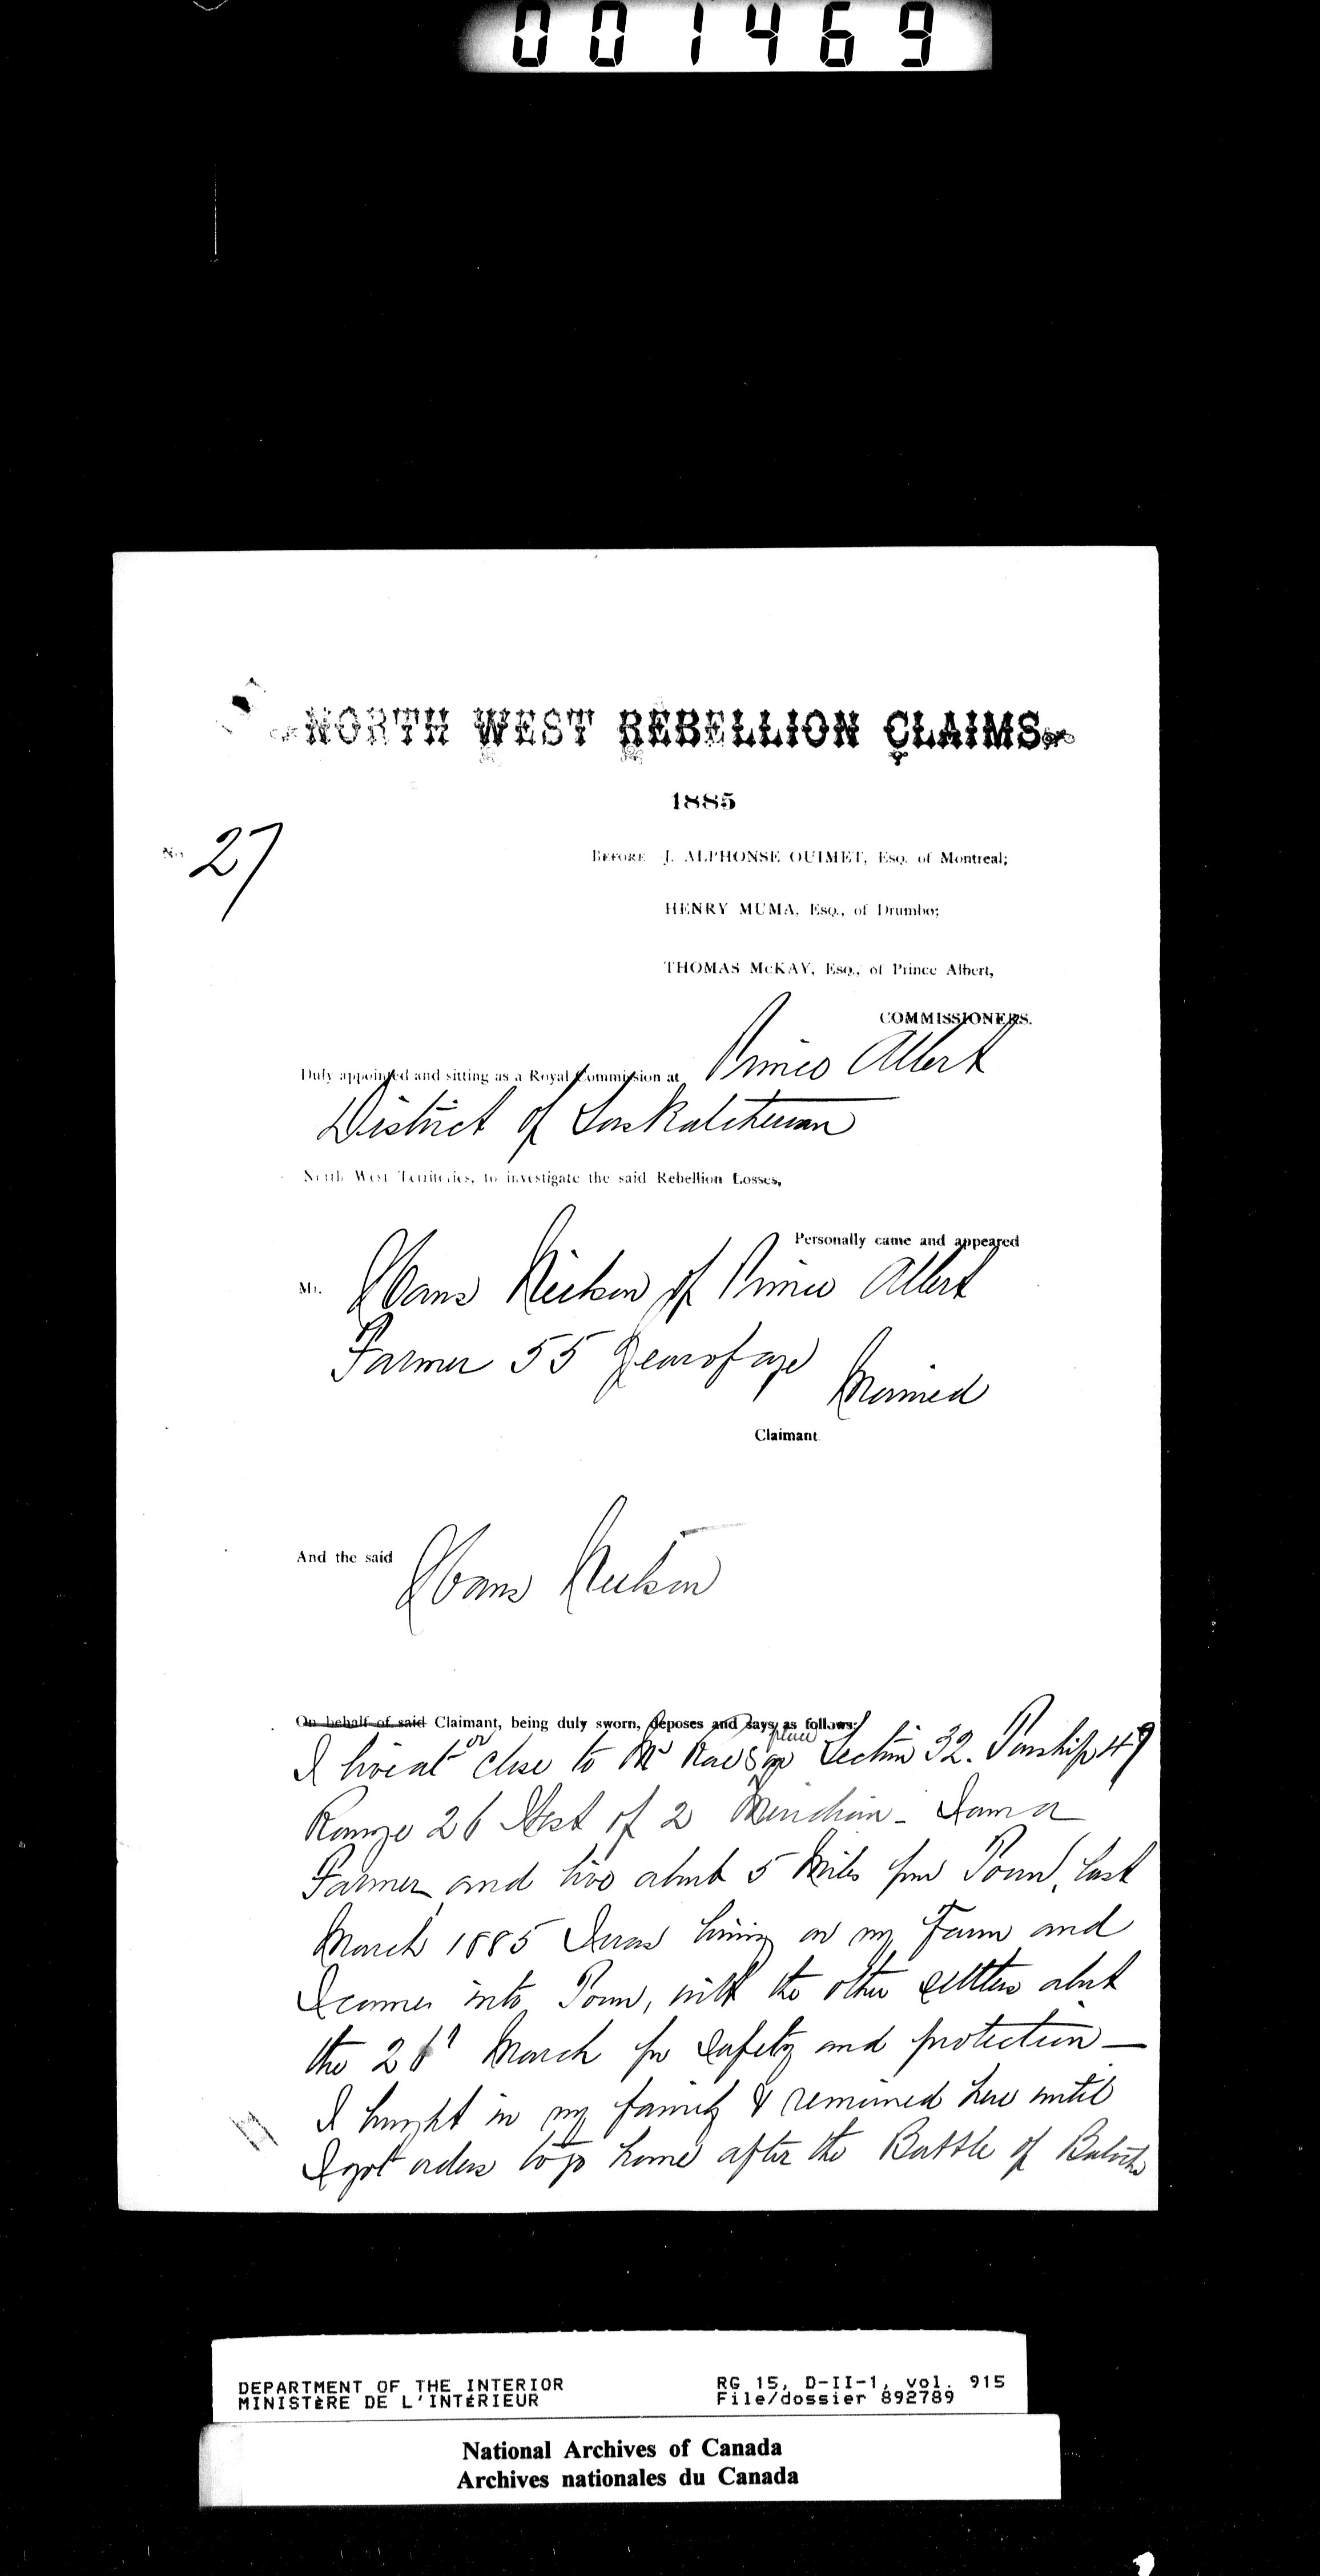 001469
NORTH WEST REBELLION CLAIMS.
1885
No. 27
BEFORE J. ALPHONSE OUIMET, Esq. of Montreal;
HENRY MUMA, Esq., of Drumbo;
THOMAS McKAY, Esq., of Prince Albert,
COMMISSIONERS.
Duly appointed and sitting as a Royal Commission at Prince Albert
District of Saskatchewan
North West Territories, to investigate the said Rebellion Losses,
Personally came and appeared
Mr. Hans of Prince Albert
Farmer 55 Years of age
Married
Claimant
And the said Hans
On behalf of said Claimant, being duly sworn, deposes and says, as follows:
I live at or close to Mr place Section 32. Township 49
Range 26 West of 2 Meridian - I am a
Farmer and live about 5 Miles from Town, last
March 1885 I was living on my Farm and
I came into Town, with the other settlers about
the 26t March for safety and protection —
I brought in my family & remained here until
I got orders to go home after the Battle of Batoche
DEPARTMENT OF THE INTERIOR
MINISTÈRE DE L'INTÉRIEUR
RG 15, D-II-1, vol. 915
File/dossier 892789
National Archives of Canada
Archives nationales du Canada